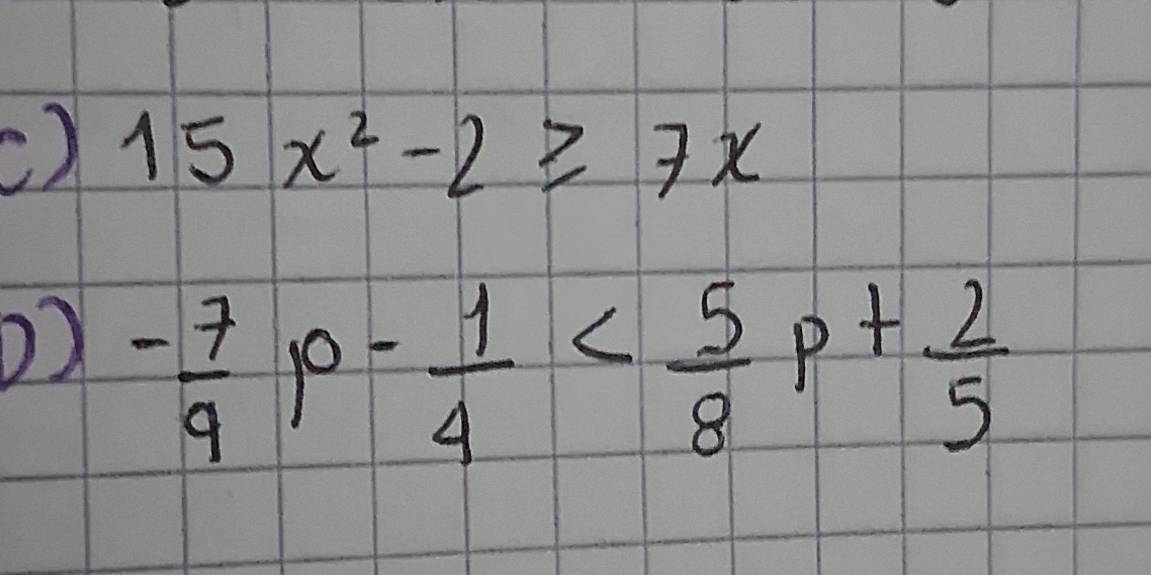 C) 15x² - 2 ≥ 7x
D) -7/9 p - 1/4 < 5/8 p + 2/5